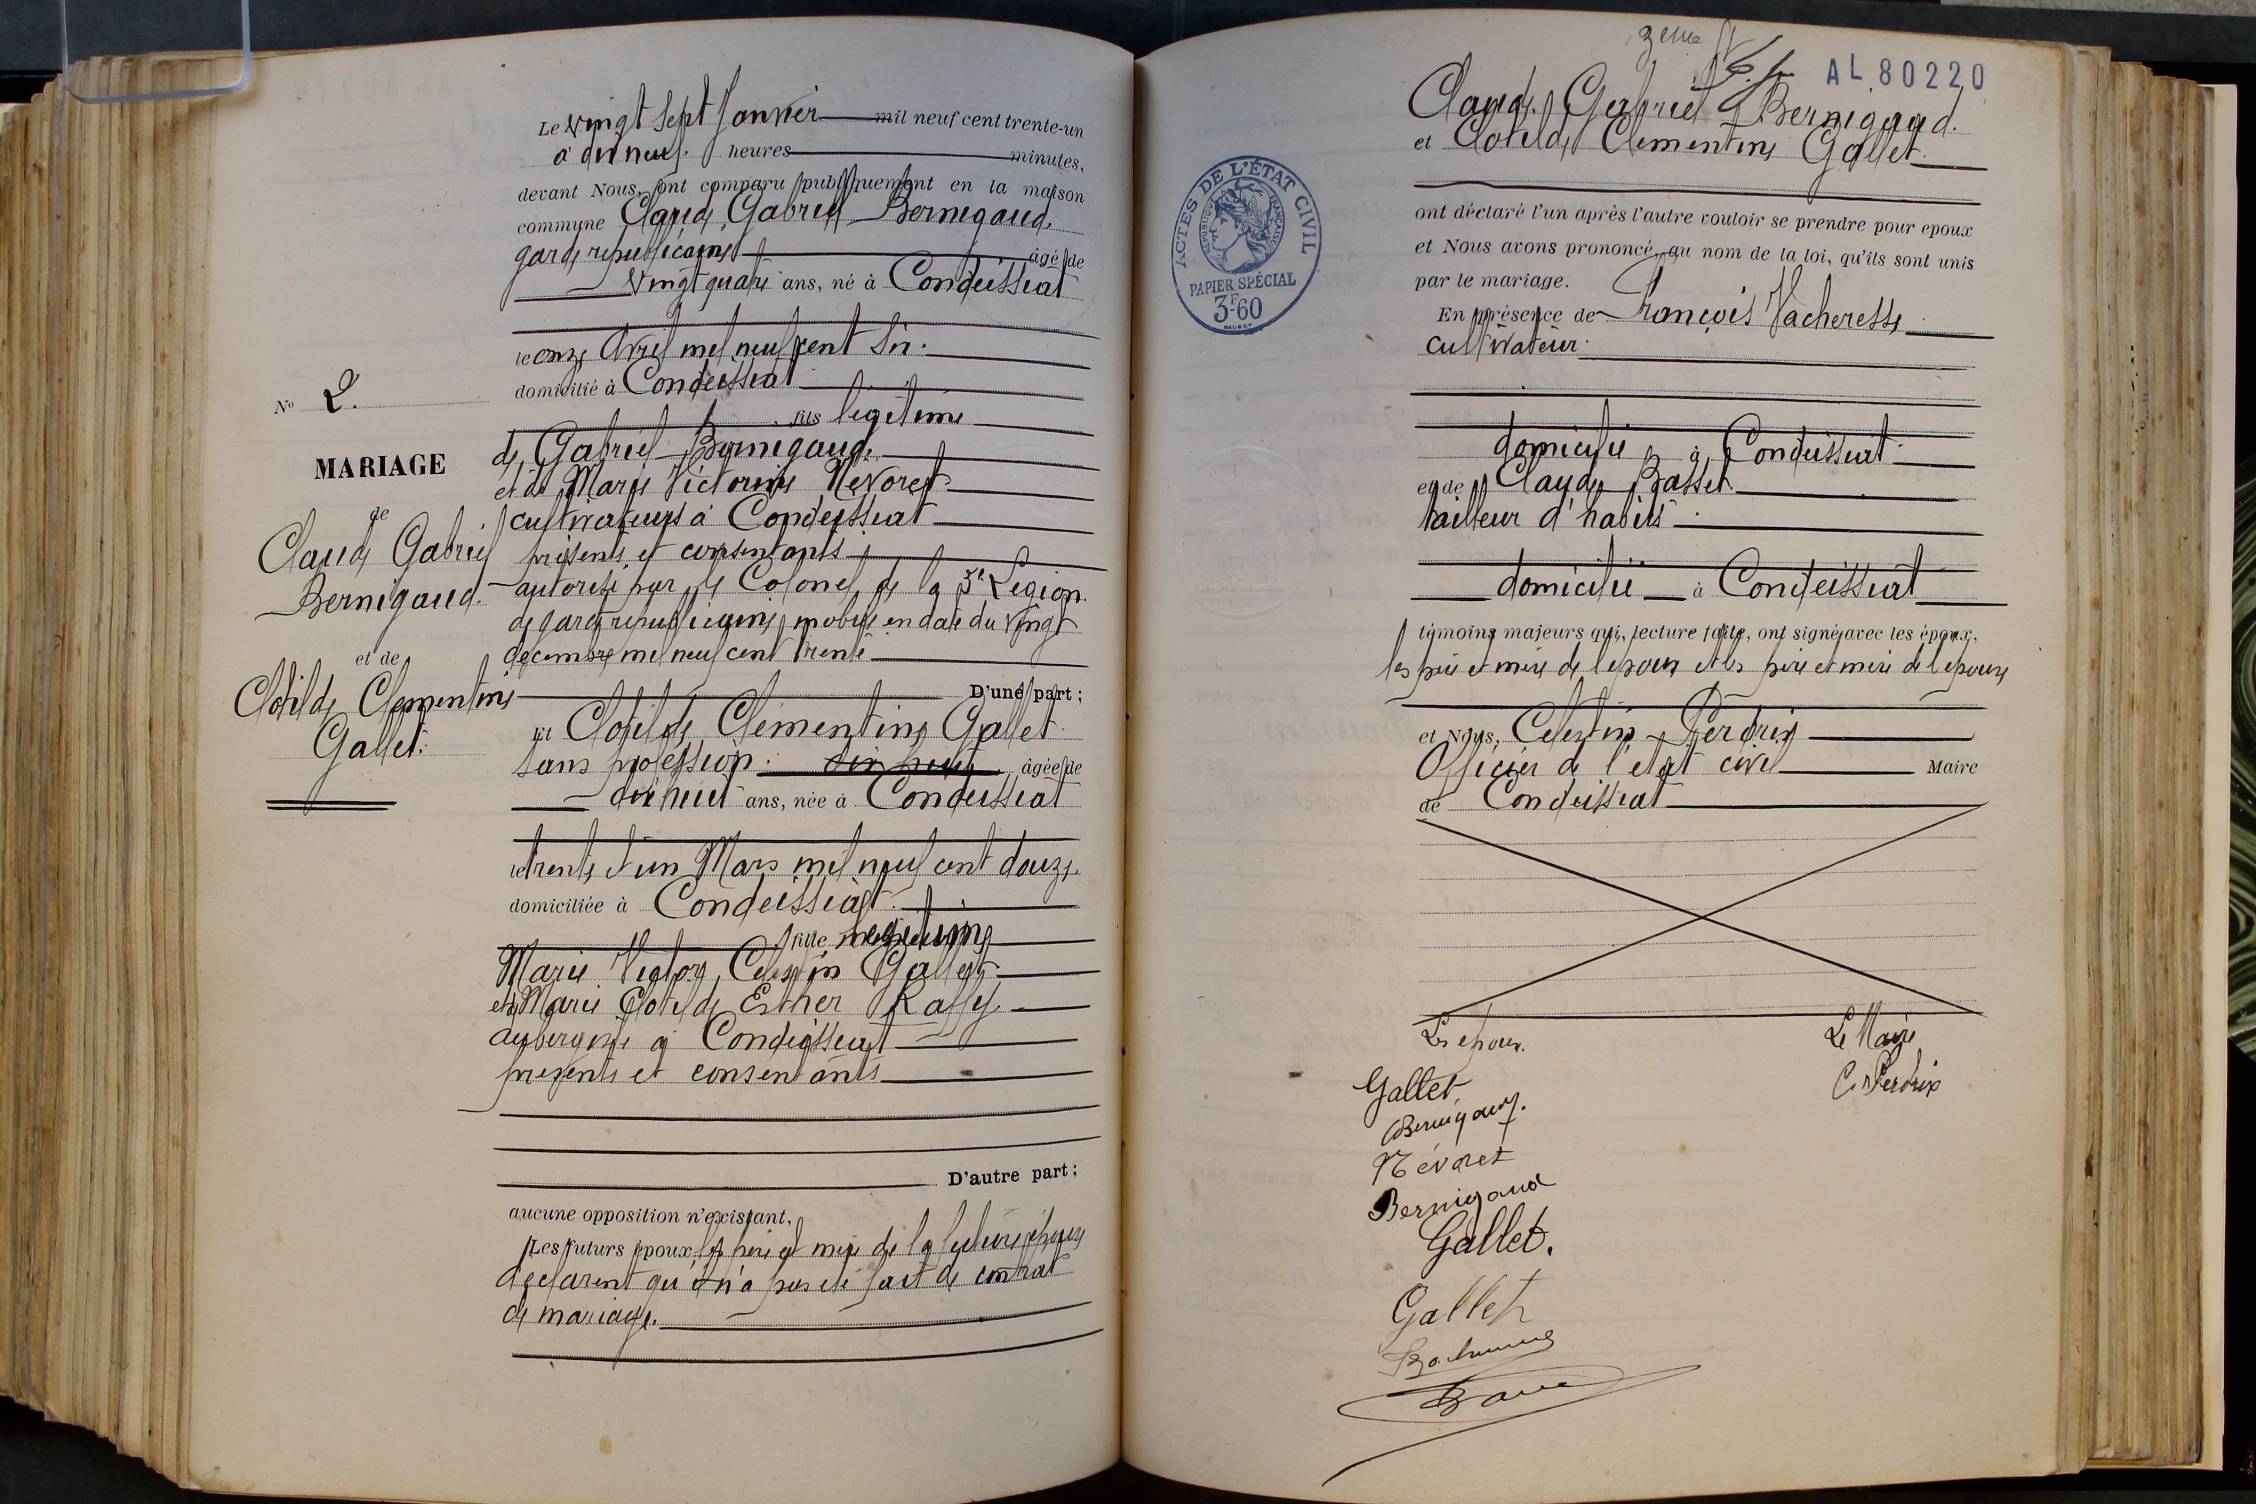 Le vingt sept Janvier mil neuf cent trente-un
à dix neuf heures minutes,
devant Nous, ont comparu publiquement en la maison
commune Claude Gabriel Bernigaud
garde républicain âgé de
vingt quatre ans, né à Condeissiat
le onze Avril mil neuf cent six.
domicilié à Condeissiat
fils légitime
de Gabriel Bernigaud
et de Marie Victorine Névoret
cultivateurs à Condeissiat
présents et consentants
autorisé par le Colonel de la 3e Légion
de garde républicaine mobile en date du vingt
décembre mil neuf cent trente
D'une part;
Et Clotilde Clémentine Gallet
sans profession. âgée de
dix huit ans, née à Condeissiat
le trente et un Mars mil neuf cent douze.
domiciliée à Condeissiat.
fille
Marie Victor Célestin Gallet
et de Marie Clotilde Esther Raffy
aubergiste à Condeissiat
présents et consentants
D'autre part;
aucune opposition n'existant,
Les futurs époux, les père et mère de la future épouse
déclarent qu'il n'a pas été fait de contrat
de mariage.
No 2.
MARIAGE
de
Claude Gabriel
Bernigaud
et de
Clotilde Clementine
Gallet.
3eme
AL 80220
Claude Gabriel Bernigaud.
et Clotilde Clementine Gallet
ACTES DE L'ÉTAT CIVIL
RÉPUBLIQUE FRANÇAISE
PAPIER SPÉCIAL
3F60
ont déclaré l'un après l'autre vouloir se prendre pour époux
et Nous avons prononcé, au nom de la loi, qu'ils sont unis
par le mariage.
En présence de François Vacheresse
cultivateur.
domicilié à Condeissiat
et de Claude Basset
tailleur d'habits
domicilié à Condeissiat
témoins majeurs qui, lecture faite, ont signé avec les époux,
les père et mère de l'époux et les père et mère de l'épouse
et Nous, Célestin Perdrix
Officier de l'état civil Maire
de Condeissiat
Les époux.
Le Maire
Gallet
C. Perdrix
Bernigaud.
Névoret
Bernigaud
Gallet.
Gallet